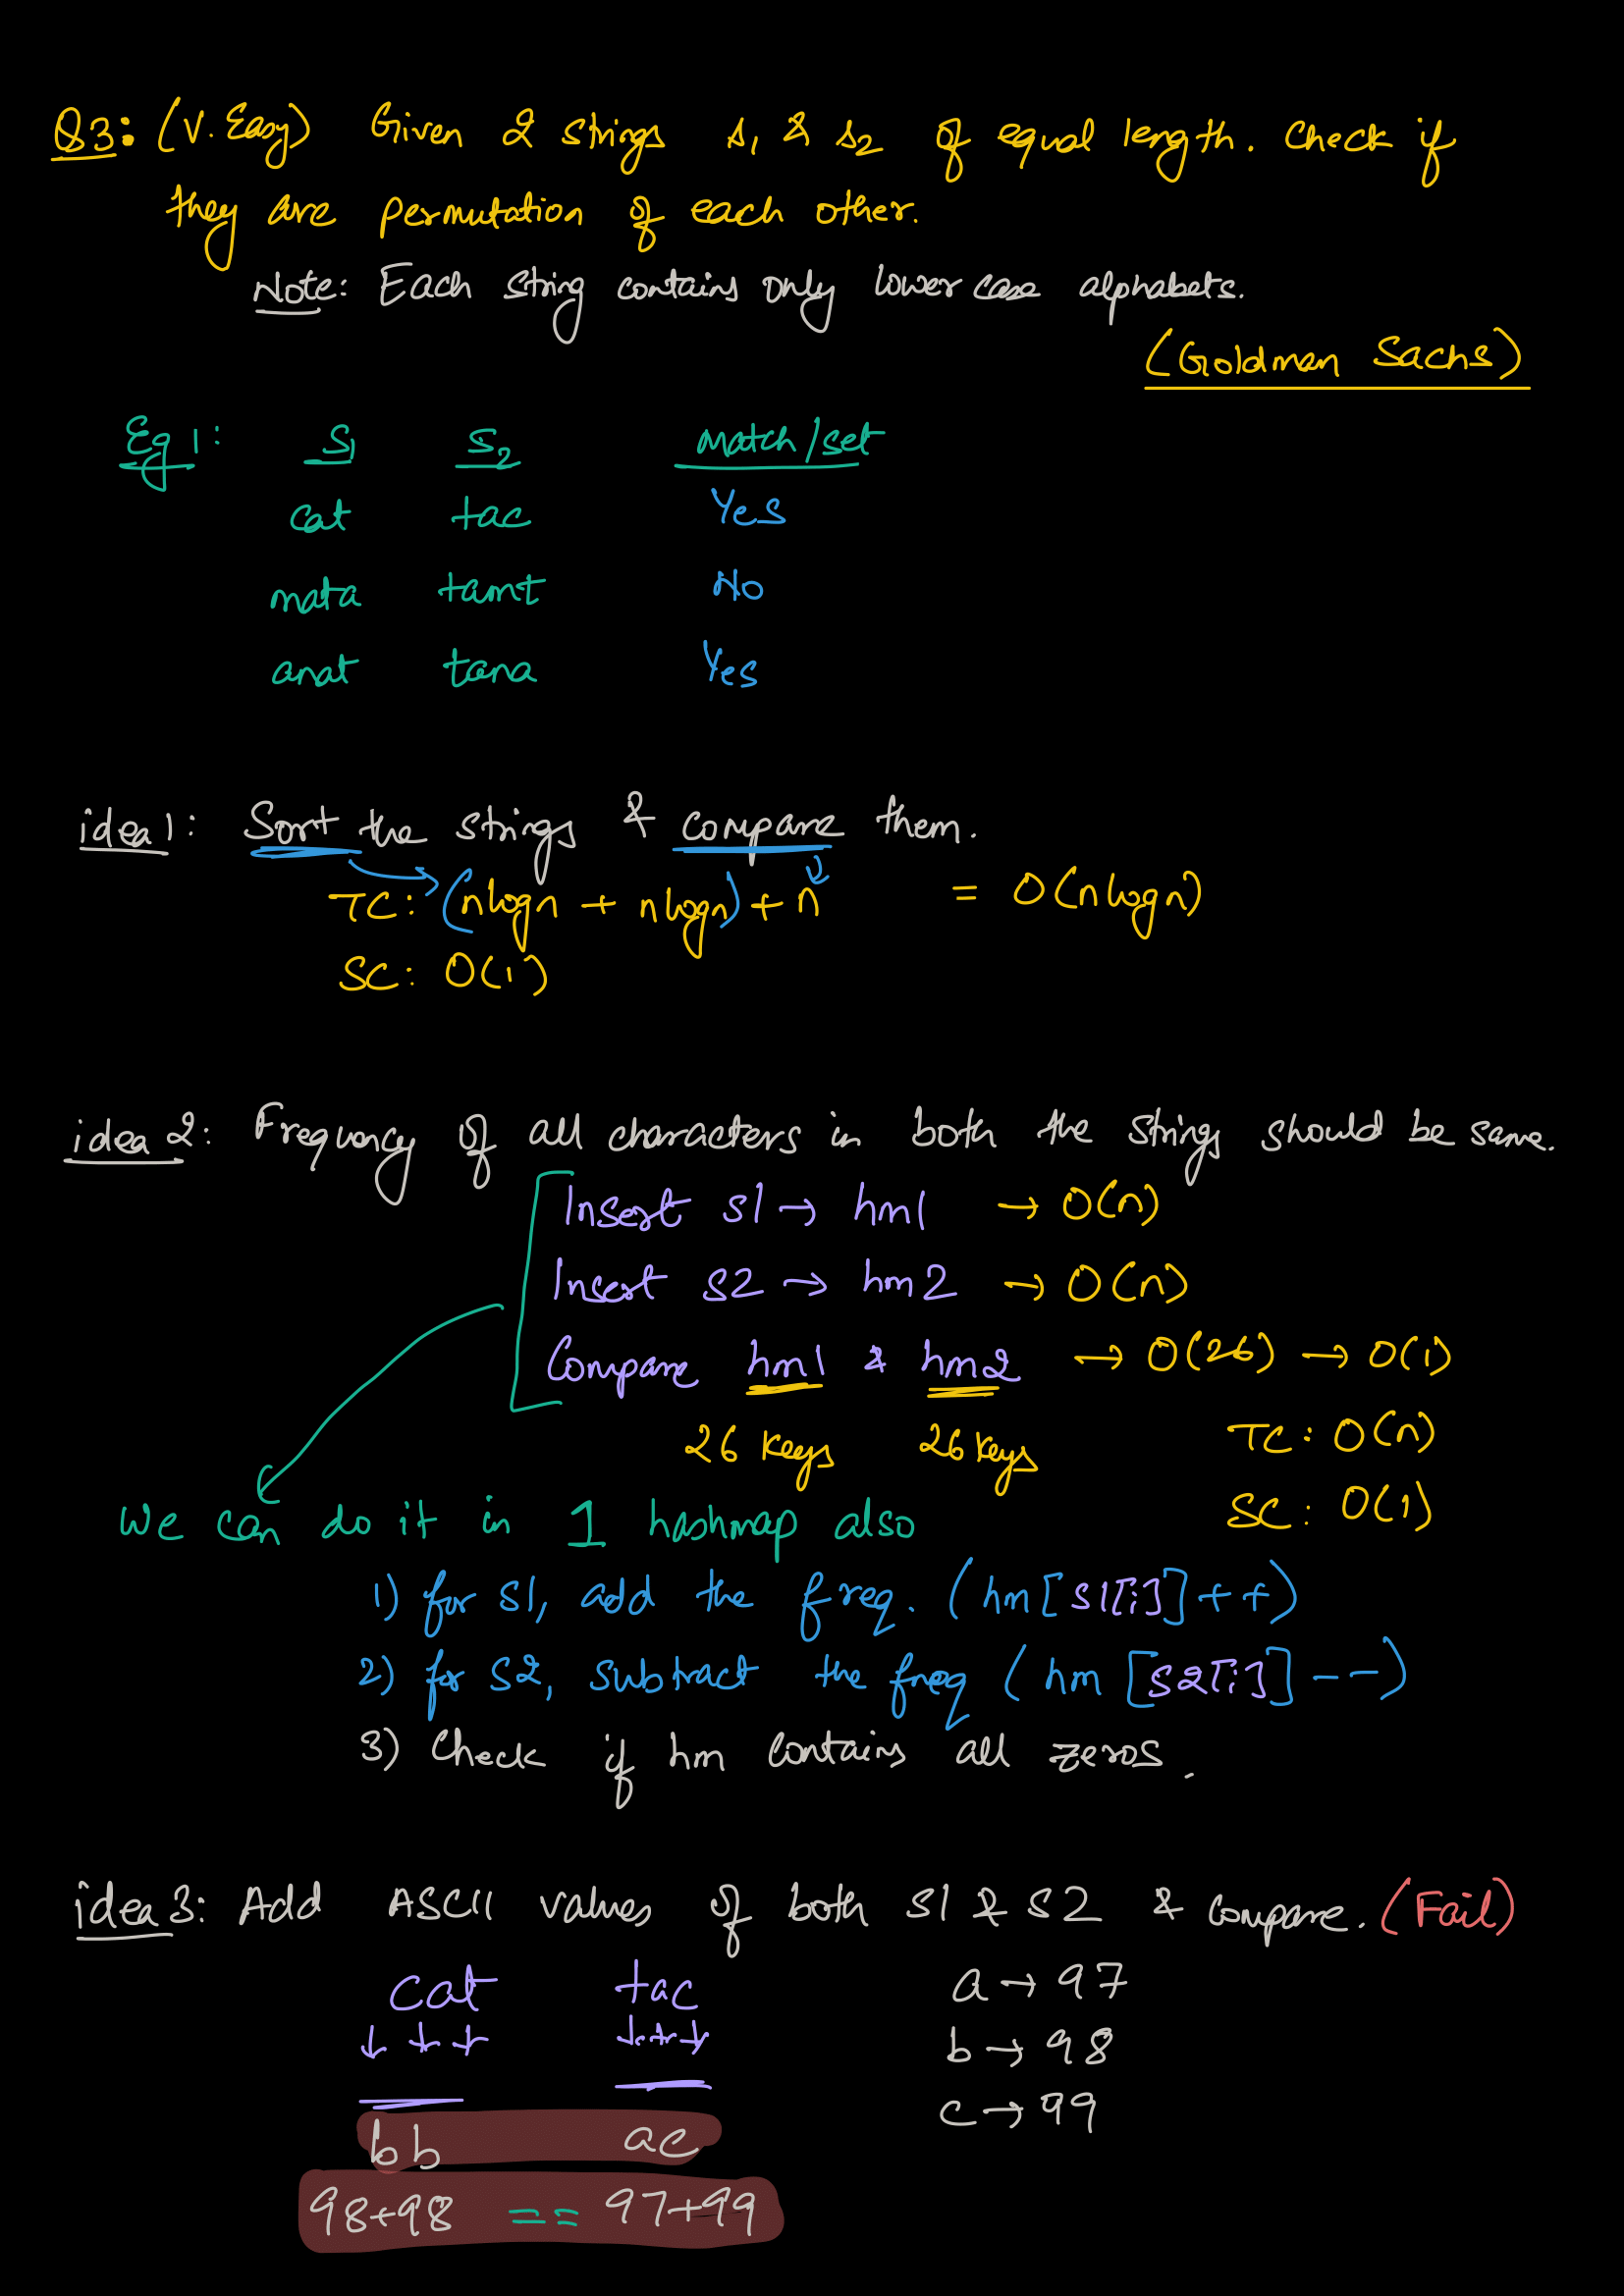 Q3: (V. Easy) Given 2 strings s1 & s2 of equal length. Check if
they are permutation of each other.
Note: Each string contains only lower case alphabets.
(Goldman Sachs)
Eg 1: S1 S2 match/set
cat tac Yes
mata tamt No
anat tana Yes
idea 1: Sort the strings & compare them.
TC: (nlogn + nlogn) + n = O(nlogn)
SC: O(1)
idea 2: Frequency of all characters in both the strings should be same.
Insert s1 → hm1 → O(n)
Insert s2 → hm2 → O(n)
Compare hm1 & hm2 → O(26) → O(1)
26 keys 26 keys TC: O(n)
SC: O(1)
We can do it in 1 hashmap also
1) for s1, add the freq. (hm[s1[i]]++)
2) for s2, subtract the freq (hm[s2[i]]--)
3) Check if hm contains all zeros.
idea 3: Add ASCII values of both s1 & s2 & compare. (Fail)
cat tac a → 97
b → 98
c → 99
bb ac
98+98 == 97+99